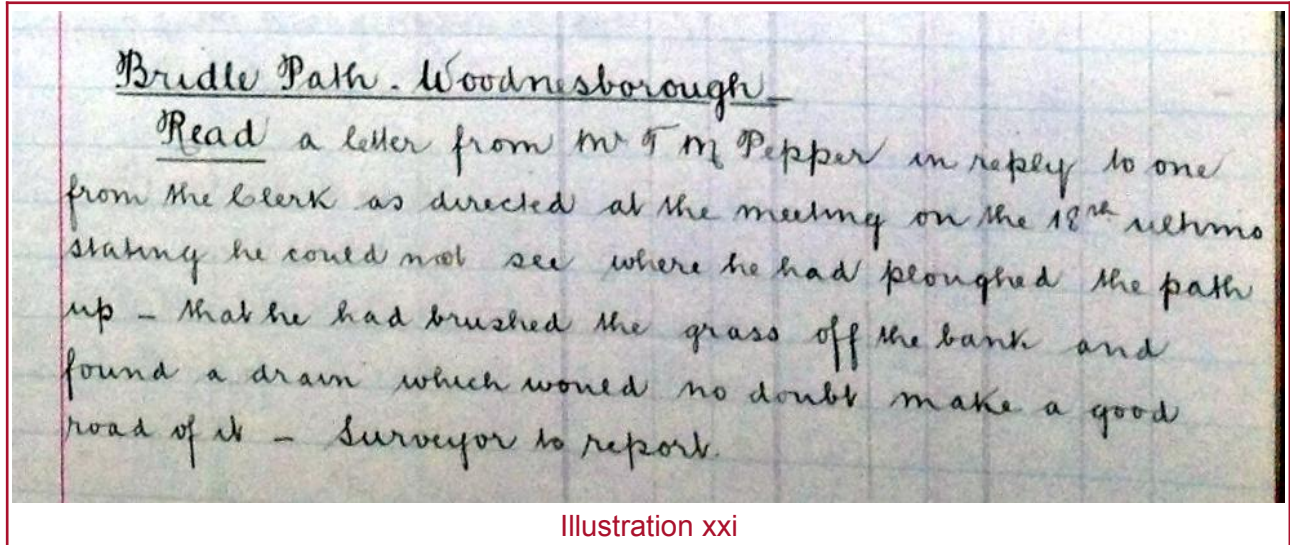 Bridle Path - Woodnesborough -
Read a letter from Mr T M Pepper in reply to one
from the Clerk as directed at the meeting on the 18th ultimo
stating he could not see where he had ploughed the path
up - that he had brushed the grass off the bank and
found a drain which would no doubt make a good
road of it - Surveyor to report.
Illustration xxi